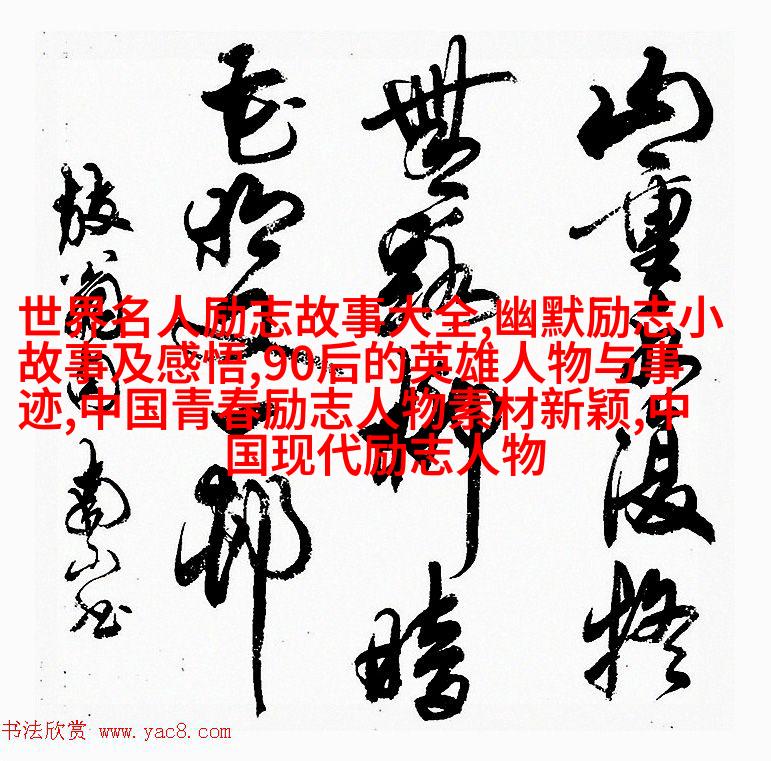 山重水復疑
無路柳暗
花明又一邨
放翁句
世界名人励志故事大全,幽默励志小
故事及感悟,90后的英雄人物与事
迹,中国青春励志人物素材新颖,中
国现代励志人物
书法欣赏 www.yac8.com